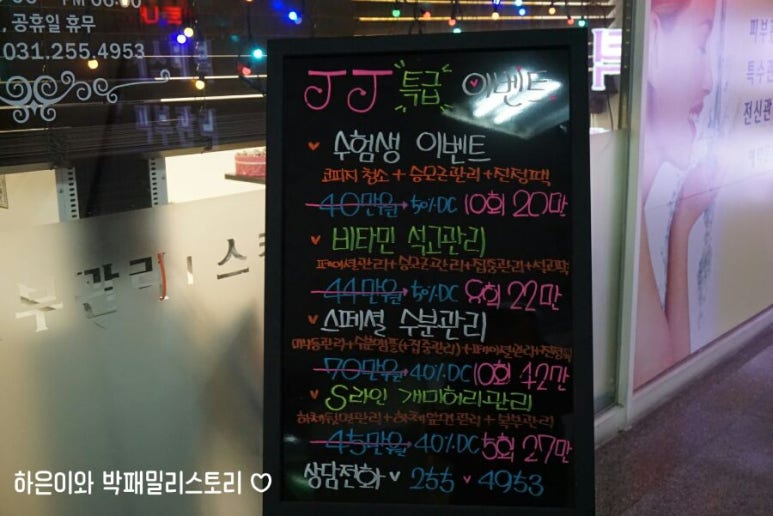 PM 06:00
, 공휴일 휴무
031.255.4953
JJ 특급 이벤트
수험생 이벤트
코피지 청소 + 승모근관리 + 진정팩
40만원 → 50%DC 10회 20만
비타민 석고관리
페이셜관리+승모근관리+집중관리+석고팩
44만원 → 50%DC 8회 22만
스페셜 수분관리
70만원 → 40%DC 10회 42만
S라인 개미허리관리
하체뒷면관리 + 하체앞면관리 + 복부관리
45만원 → 40%DC 5회 27만
상담전화 ♥ 255 ♥ 4953
부관리 스
피부
특수관
전신관
하은이와 박패밀리스토리 ♡